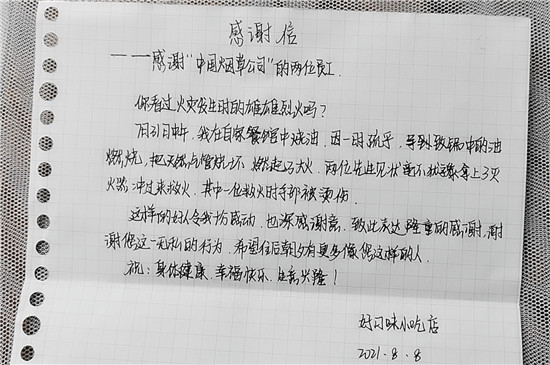 感谢信
——感谢“中国烟草公司”的两位员工.
你看过火灾发生时的雄雄烈火吗?
7月31日中午,我在自家餐馆中炼油,因一时疏乎,导到致锅中的油
燃烧,把天然点管烧坏,燃起了大火,两位先生见状毫不犹豫拿上了灭
火器冲过来救火,其中一位救火时手部被烫伤.
这样的好人令我十分感动,也深感谢意,致此表达隆重的感谢,谢
谢您这一无私的行为,希望往后朝夕有更多像您这样的人.
祝:身体健康,幸福快乐,生意兴隆!
好口味小吃店
2021.8.8